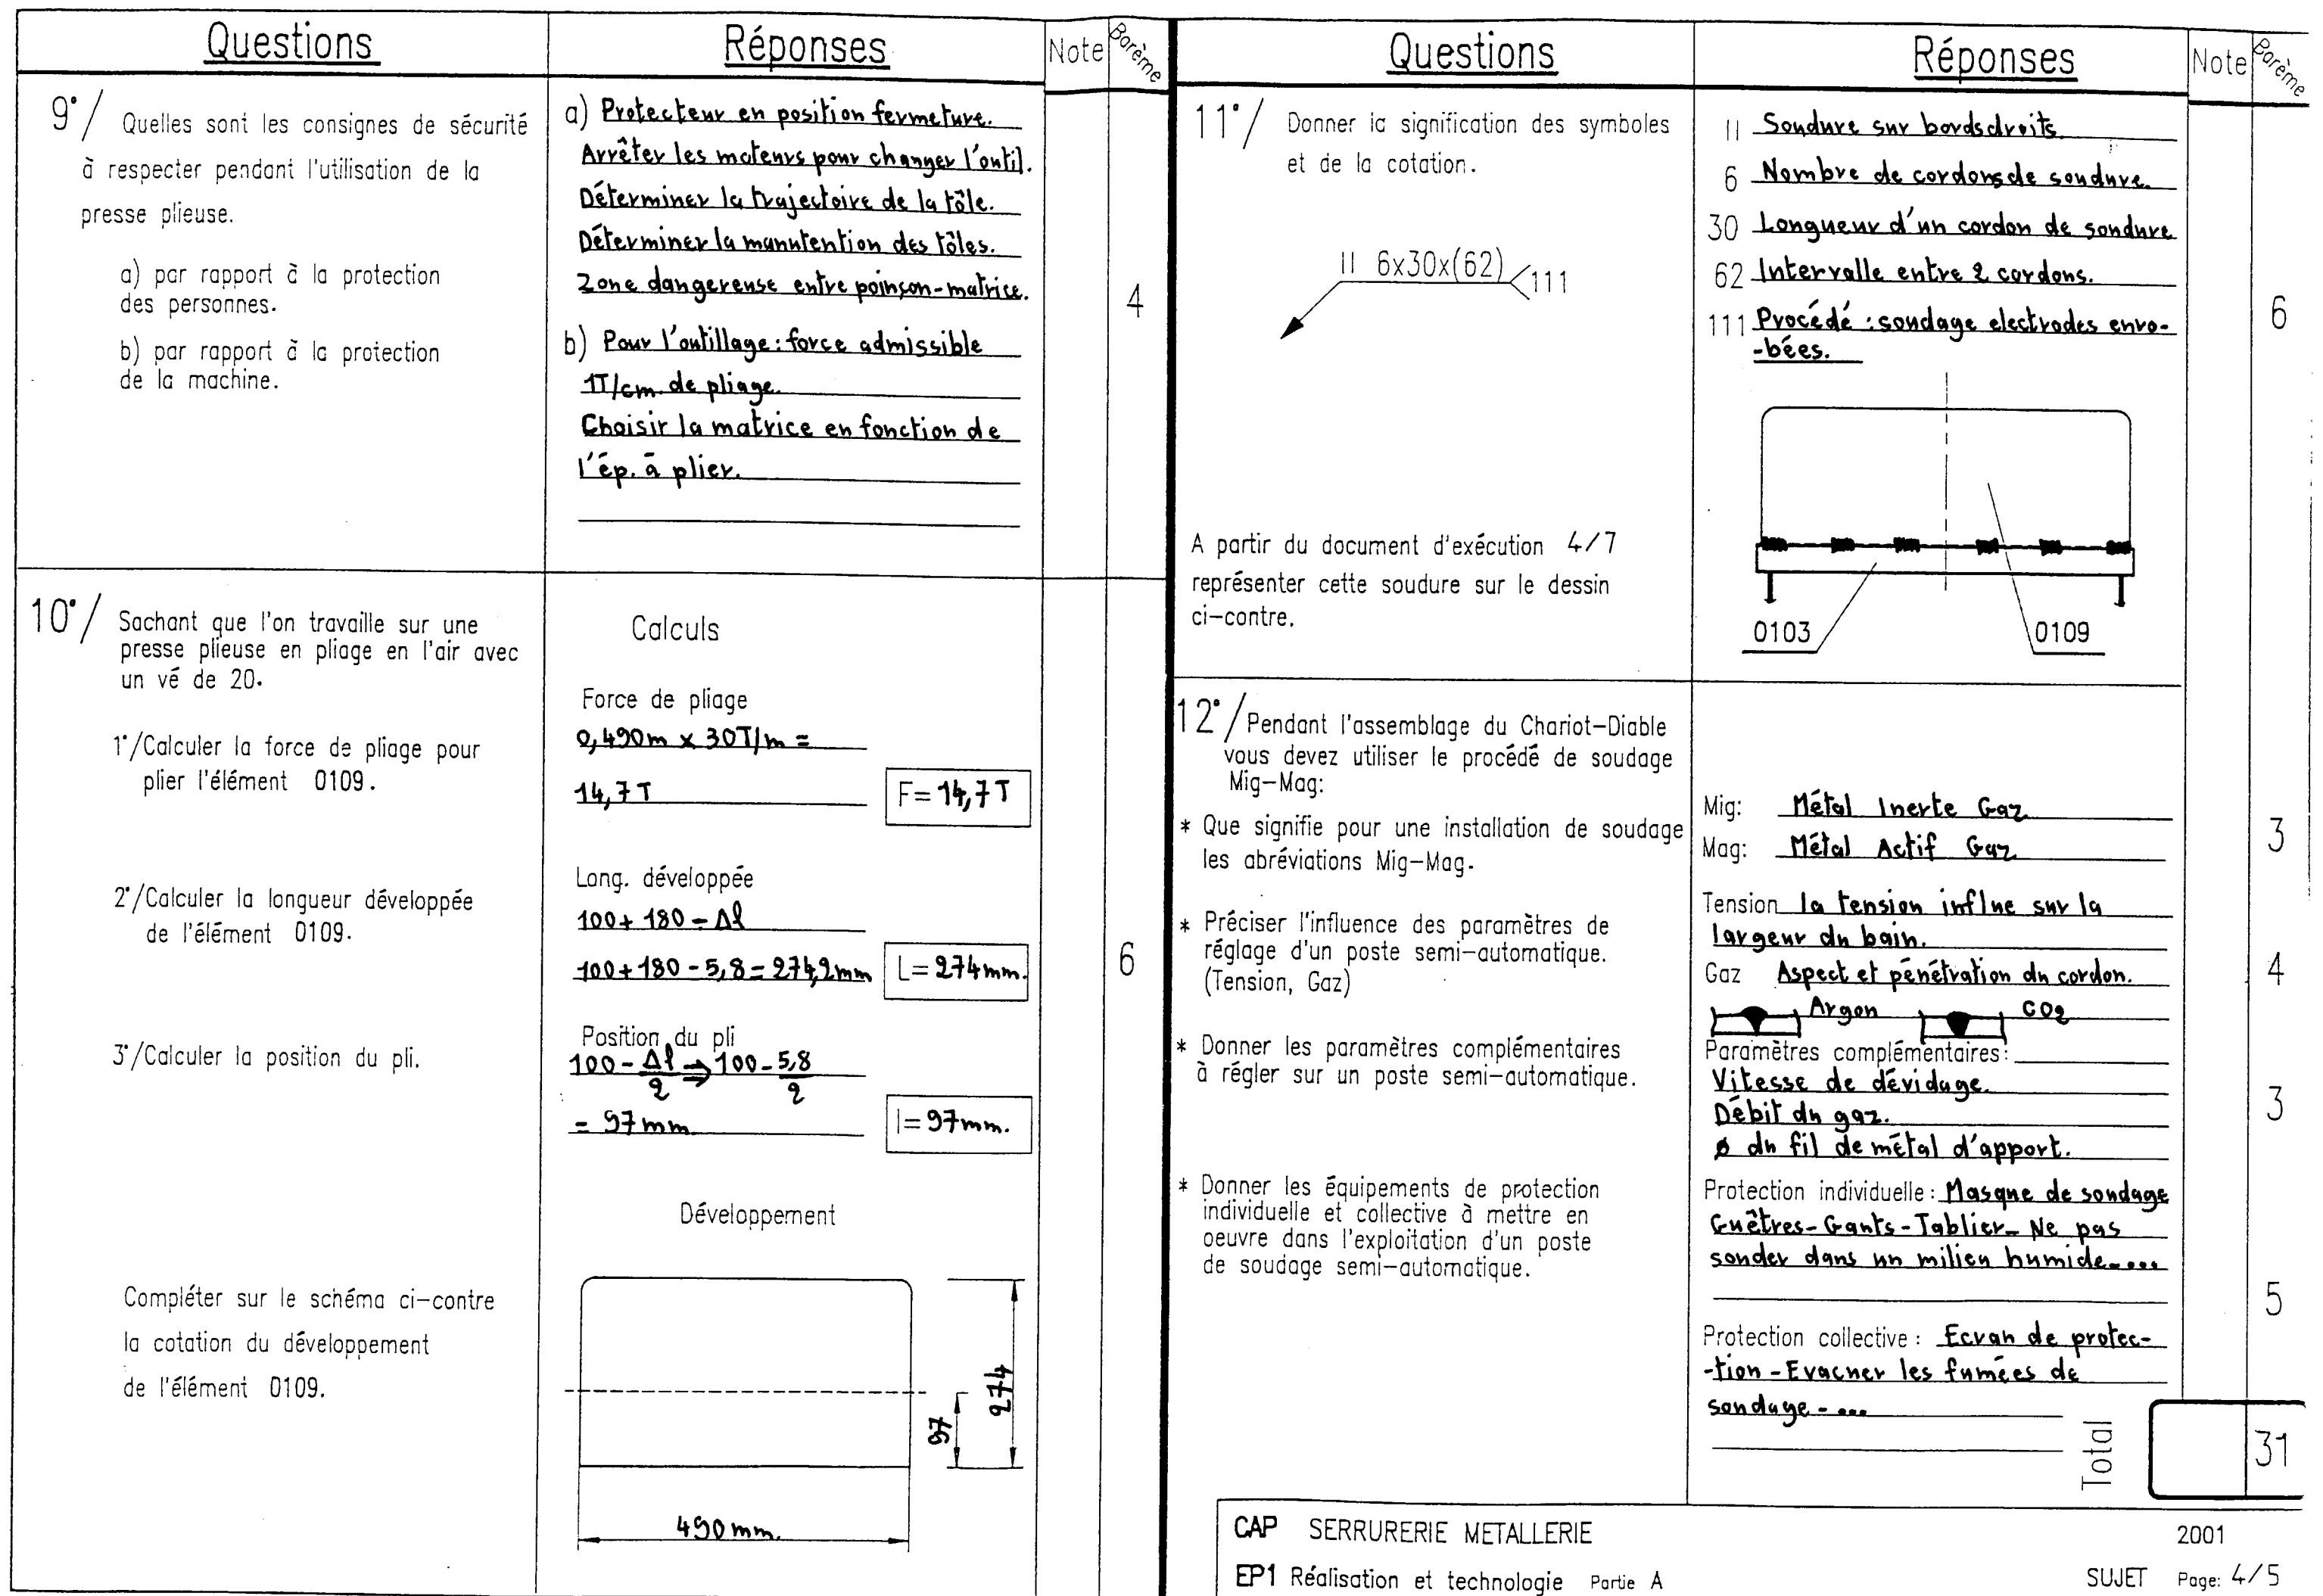 Questions
Réponses
Note
Barème
9°/ Quelles sont les consignes de sécurité
à respecter pendant l'utilisation de la
presse plieuse.
a) par rapport à la protection
des personnes.
b) par rapport à la protection
de la machine.
a) Protecteur en position fermeture.
Arrêter les moteurs pour changer l'outil.
Déterminer la trajectoire de la tôle.
Déterminer la manutention des tôles.
Zone dangereuse entre poinçon-matrice.
b) Pour l'outillage : force admissible
1T/cm de pliage.
Choisir la matrice en fonction de
l'ép. à plier.
4
10°/ Sachant que l'on travaille sur une
presse plieuse en pliage en l'air avec
un vé de 20.
1°/Calculer la force de pliage pour
plier l'élément 0109.
2°/Calculer la longueur développée
de l'élément 0109.
3°/Calculer la position du pli.
Compléter sur le schéma ci-contre
la cotation du développement
de l'élément 0109.
Calculs
Force de pliage
0,490m x 30T/m =
14,7 T
F= 14,7 T
Long. développée
100 + 180 - Δl
100 + 180 - 5,8 = 274,2mm
L= 274mm.
Position du pli
100 - Δl/2 ⇒ 100 - 5,8/2
= 97 mm
l= 97mm.
Développement
97
274
490 mm.
6
Questions
Réponses
Note
Barème
11°/ Donner la signification des symboles
et de la cotation.
|| 6x30x(62) 111
A partir du document d'exécution 4/7
représenter cette soudure sur le dessin
ci-contre.
|| Soudure sur bords droits.
6 Nombre de cordons de soudure.
30 Longueur d'un cordon de soudure
62 Intervalle entre 2 cordons.
111 Procédé : soudage electrodes enro-
-bées.
0103
0109
6
12°/ Pendant l'assemblage du Chariot-Diable
vous devez utiliser le procédé de soudage
Mig-Mag:
* Que signifie pour une installation de soudage
les abréviations Mig-Mag.
* Préciser l'influence des paramètres de
réglage d'un poste semi-automatique.
(Tension, Gaz)
* Donner les paramètres complémentaires
à régler sur un poste semi-automatique.
* Donner les équipements de protection
individuelle et collective à mettre en
oeuvre dans l'exploitation d'un poste
de soudage semi-automatique.
Mig: Métal Inerte Gaz
Mag: Métal Actif Gaz
3
Tension la tension influe sur la
largeur du bain.
Gaz Aspect et pénétration du cordon.
Argon CO2
4
Paramètres complémentaires:
Vitesse de dévidage.
Débit du gaz.
ø du fil de métal d'apport.
3
Protection individuelle : Masque de soudage
Guêtres - Gants - Tablier - Ne pas
souder dans un milieu humide....
5
Protection collective : Ecran de protec-
-tion - Evacuer les fumées de
soudage - ...
Total
31
CAP SERRURERIE METALLERIE
2001
EP1 Réalisation et technologie Partie A
SUJET Page: 4/5